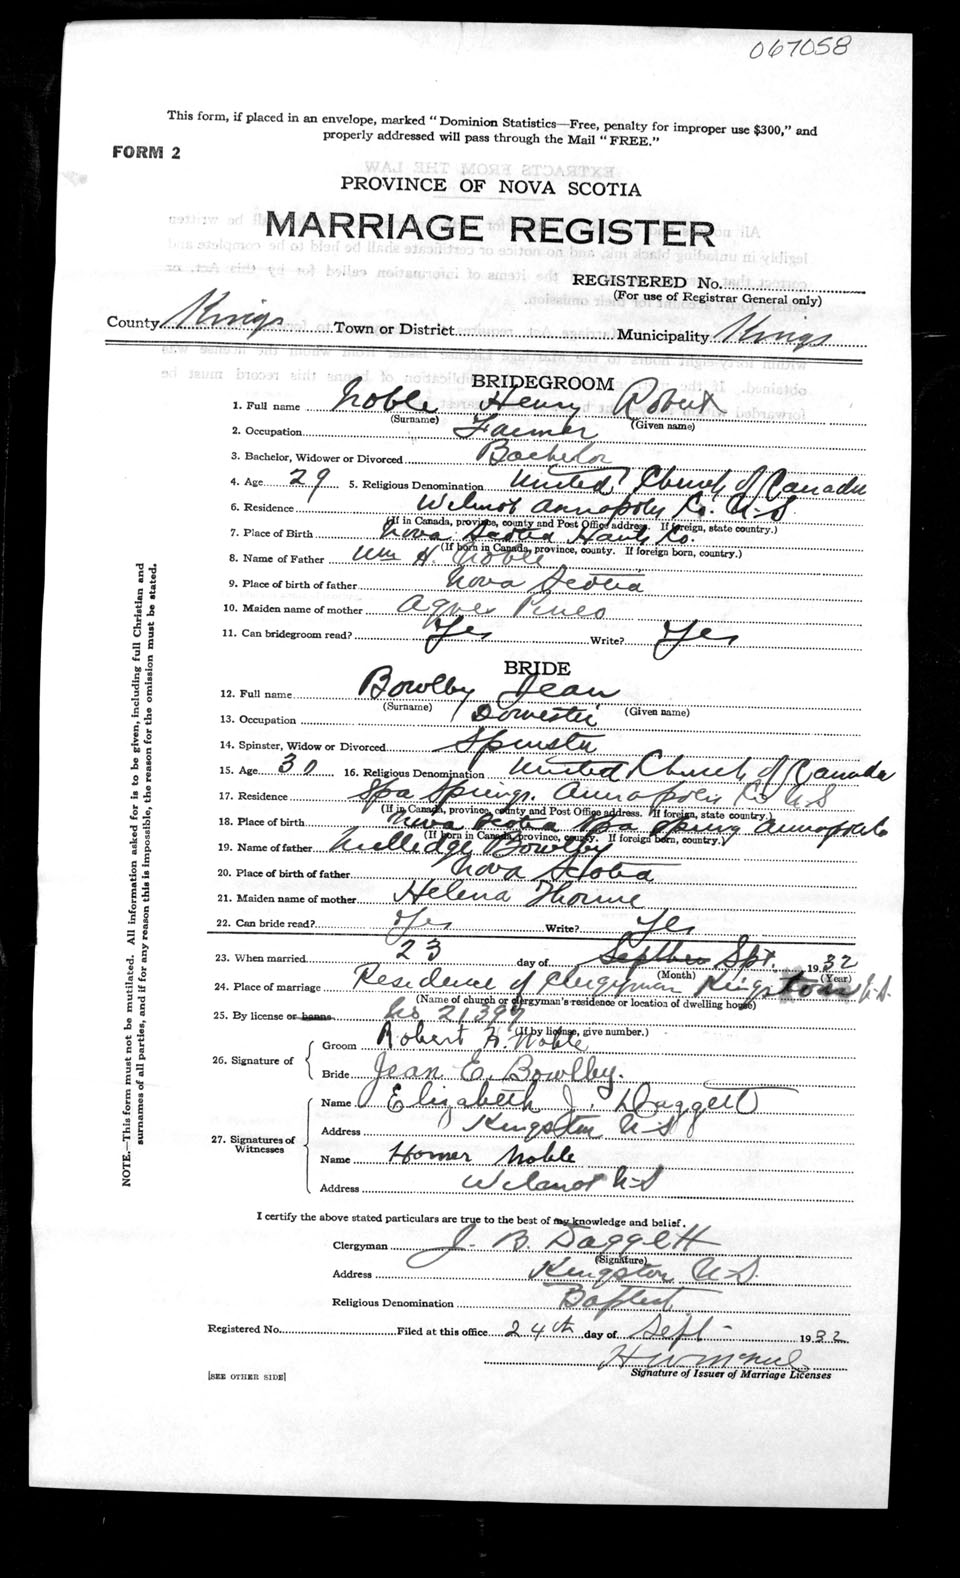 067058
This form, if placed in an envelope, marked "Dominion Statistics—Free, penalty for improper use $300," and
properly addressed will pass through the Mail "FREE."
FORM 2
PROVINCE OF NOVA SCOTIA
MARRIAGE REGISTER
REGISTERED No.
(For use of Registrar General only)
County Kings Town or District Municipality Kings
BRIDEGROOM
1. Full name Noble Henry Robert
(Surname) (Given name)
2. Occupation Farmer
3. Bachelor, Widower or Divorced Bachelor
4. Age 29 5. Religious Denomination United Church of Canada
6. Residence Wilmot Annapolis Co. N.S.
(If in Canada, province, county and Post Office address. If foreign, state country.)
7. Place of Birth Nova Scotia Hants Co.
(If born in Canada, province, county. If foreign born, country.)
8. Name of Father Wm H. Noble
9. Place of birth of father Nova Scotia
10. Maiden name of mother Agnes Pineo
11. Can bridegroom read? Yes Write? Yes
BRIDE
12. Full name Bowlby Jean
(Surname) (Given name)
13. Occupation Domestic
14. Spinster, Widow or Divorced Spinster
15. Age 30 16. Religious Denomination United Church of Canada
17. Residence Spa Springs. Annapolis Co N.S
(If in Canada, province, county and Post Office address. If foreign, state country.)
18. Place of birth Nova Scotia Spa Spring Annapolis
(If born in Canada, province, county. If foreign born, country.)
19. Name of father Milledge Bowlby
20. Place of birth of father Nova Scotia
21. Maiden name of mother Helena Thorne
22. Can bride read? Yes Write? Yes
23. When married 23 day of Spt. 1932
(Month) (Year)
24. Place of marriage Residence of Clergyman Kingston N.S.
(Name of church or clergyman's residence or location of dwelling house)
25. By license or banns No 21399
(If by license, give number.)
26. Signature of
Groom Robert H. Noble
Bride Jean E. Bowlby.
27. Signatures of
Witnesses
Name Elizabeth J. Daggett
Address Kingston N.S
Name Homer Noble
Address Wilmot N.S
I certify the above stated particulars are true to the best of my knowledge and belief.
Clergyman J. B. Daggett
(Signature)
Address Kingston N.S.
Religious Denomination Baptist
Registered No. Filed at this office 24th day of Sept 1932
H W McNeil
Signature of Issuer of Marriage Licenses
[SEE OTHER SIDE]
NOTE.—This form must not be mutilated. All information asked for is to be given, including full Christian and
surnames of all parties, and if for any reason this is impossible, the reason for the omission must be stated.